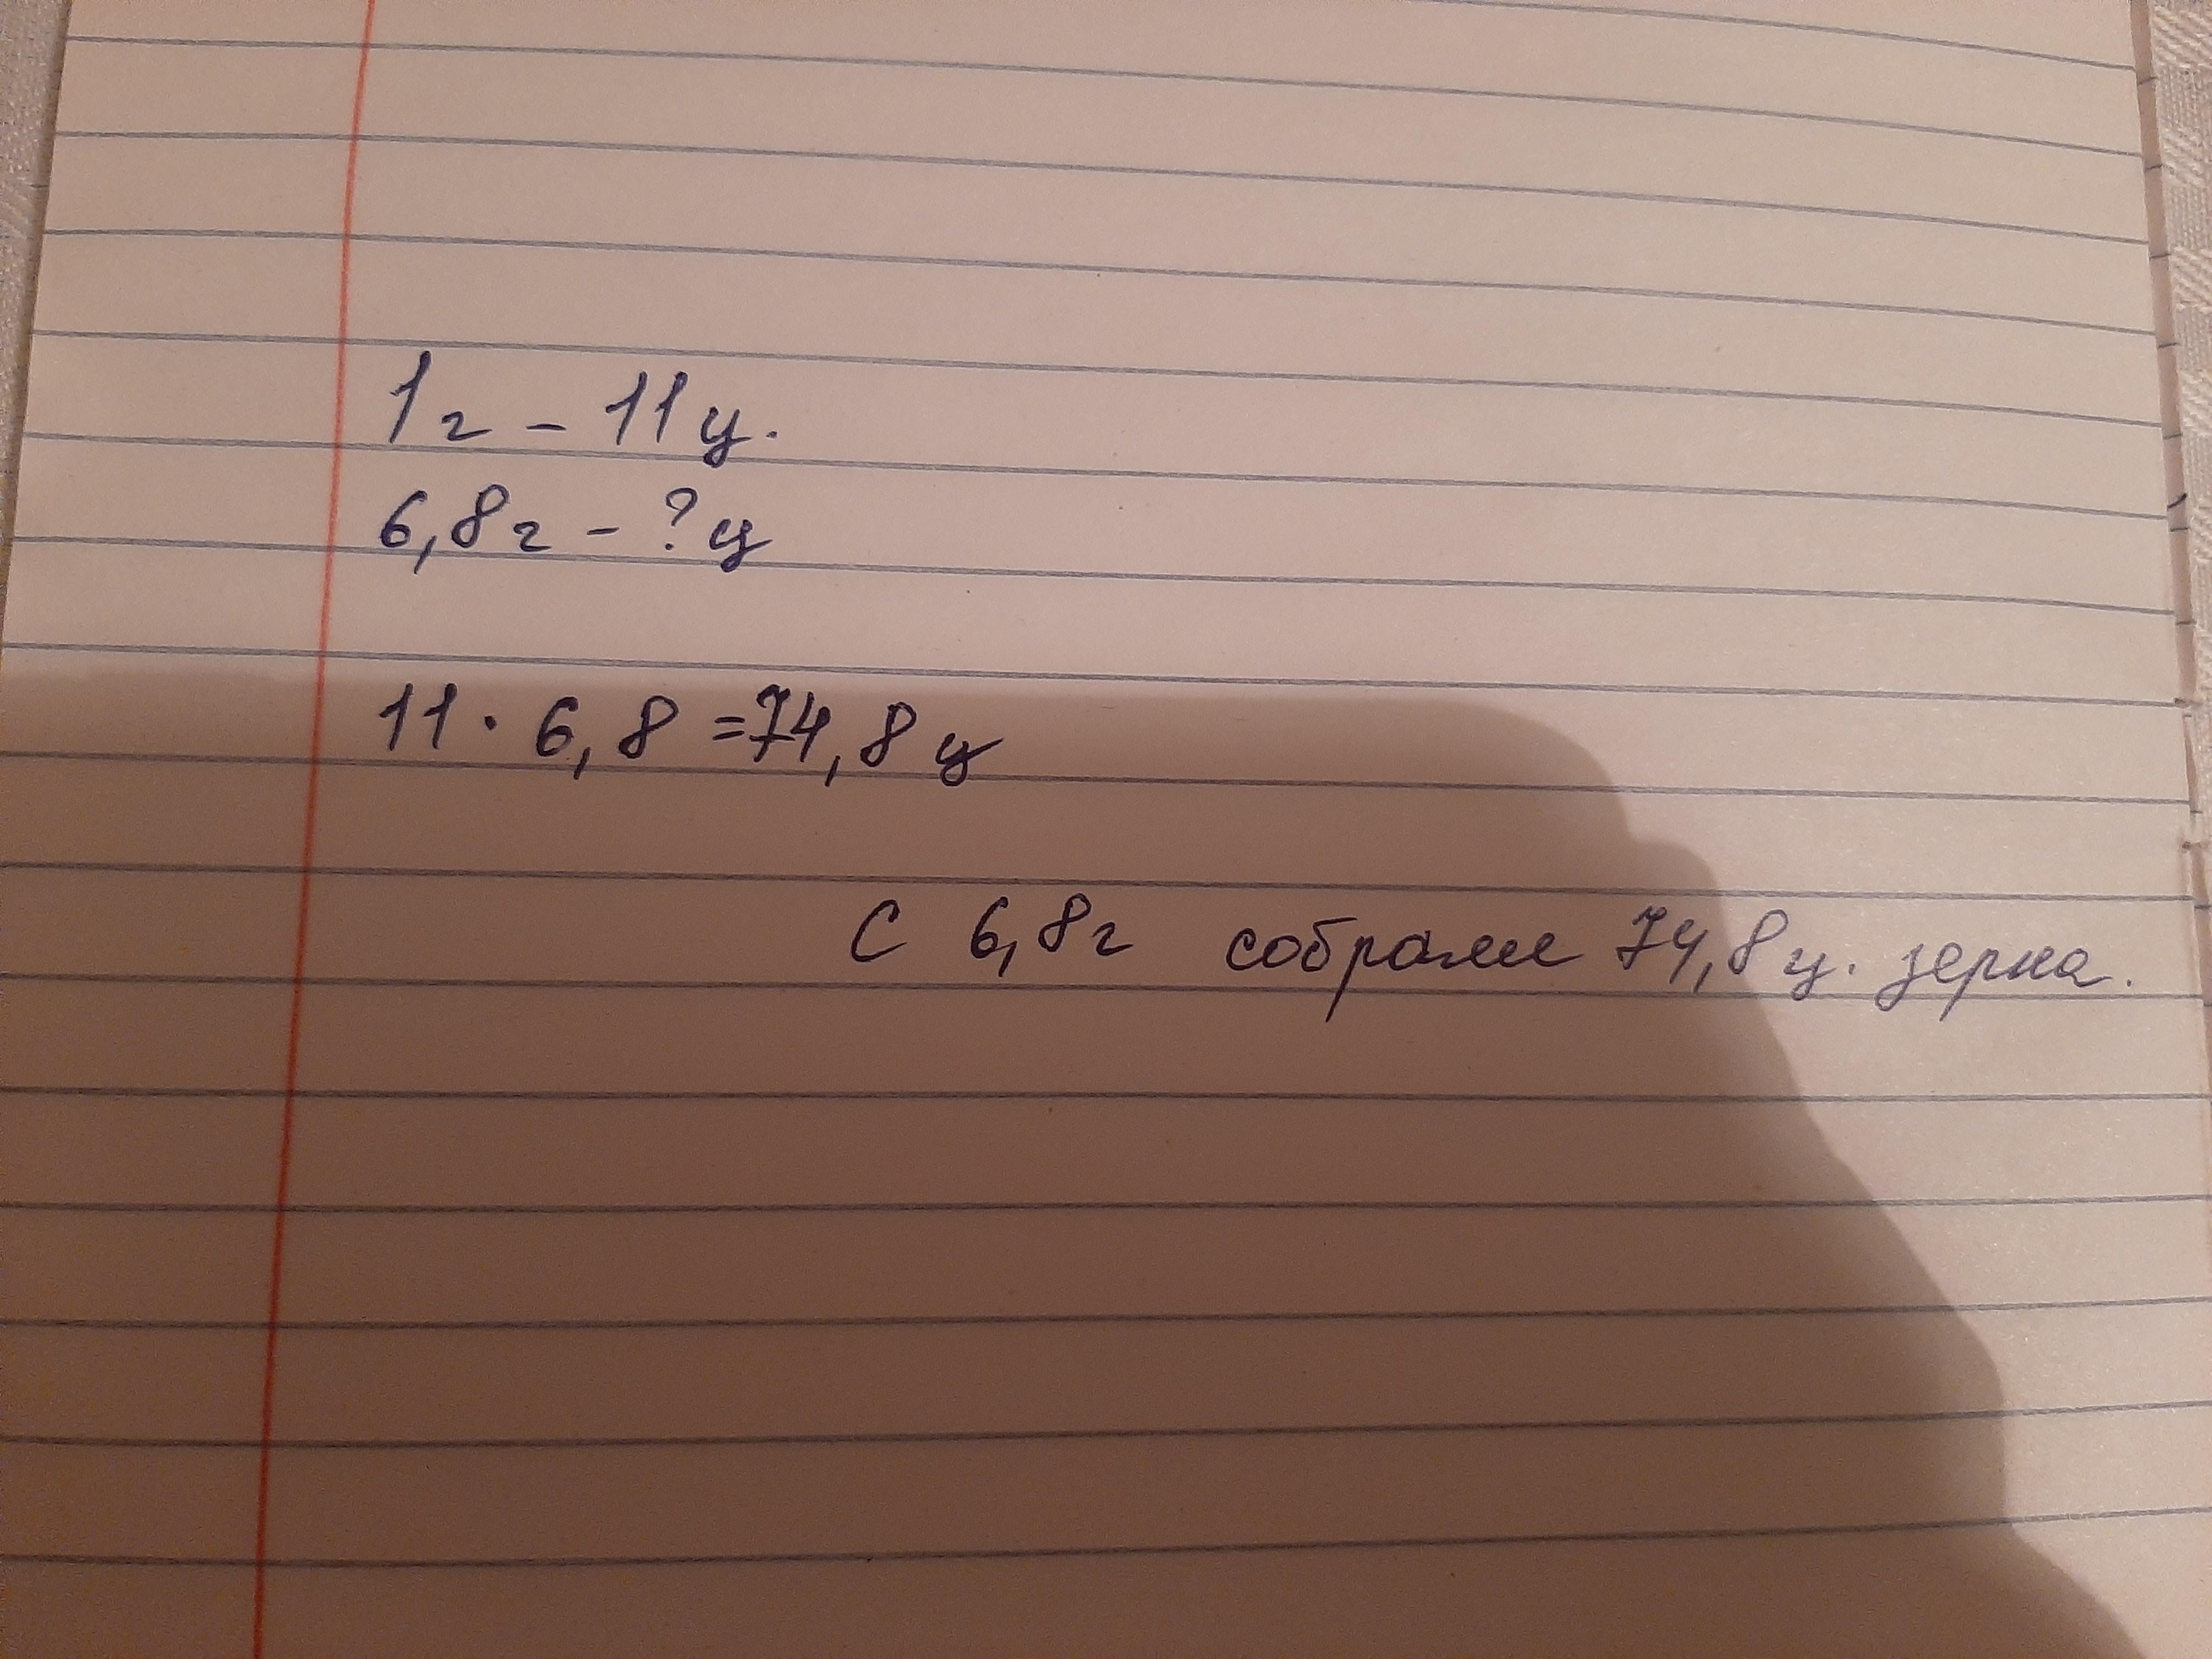 1г - 11ц.
6,8г - ? ц
11 · 6,8 = 74,8 ц
С 6,8г собрали 74,8ц. зерна.